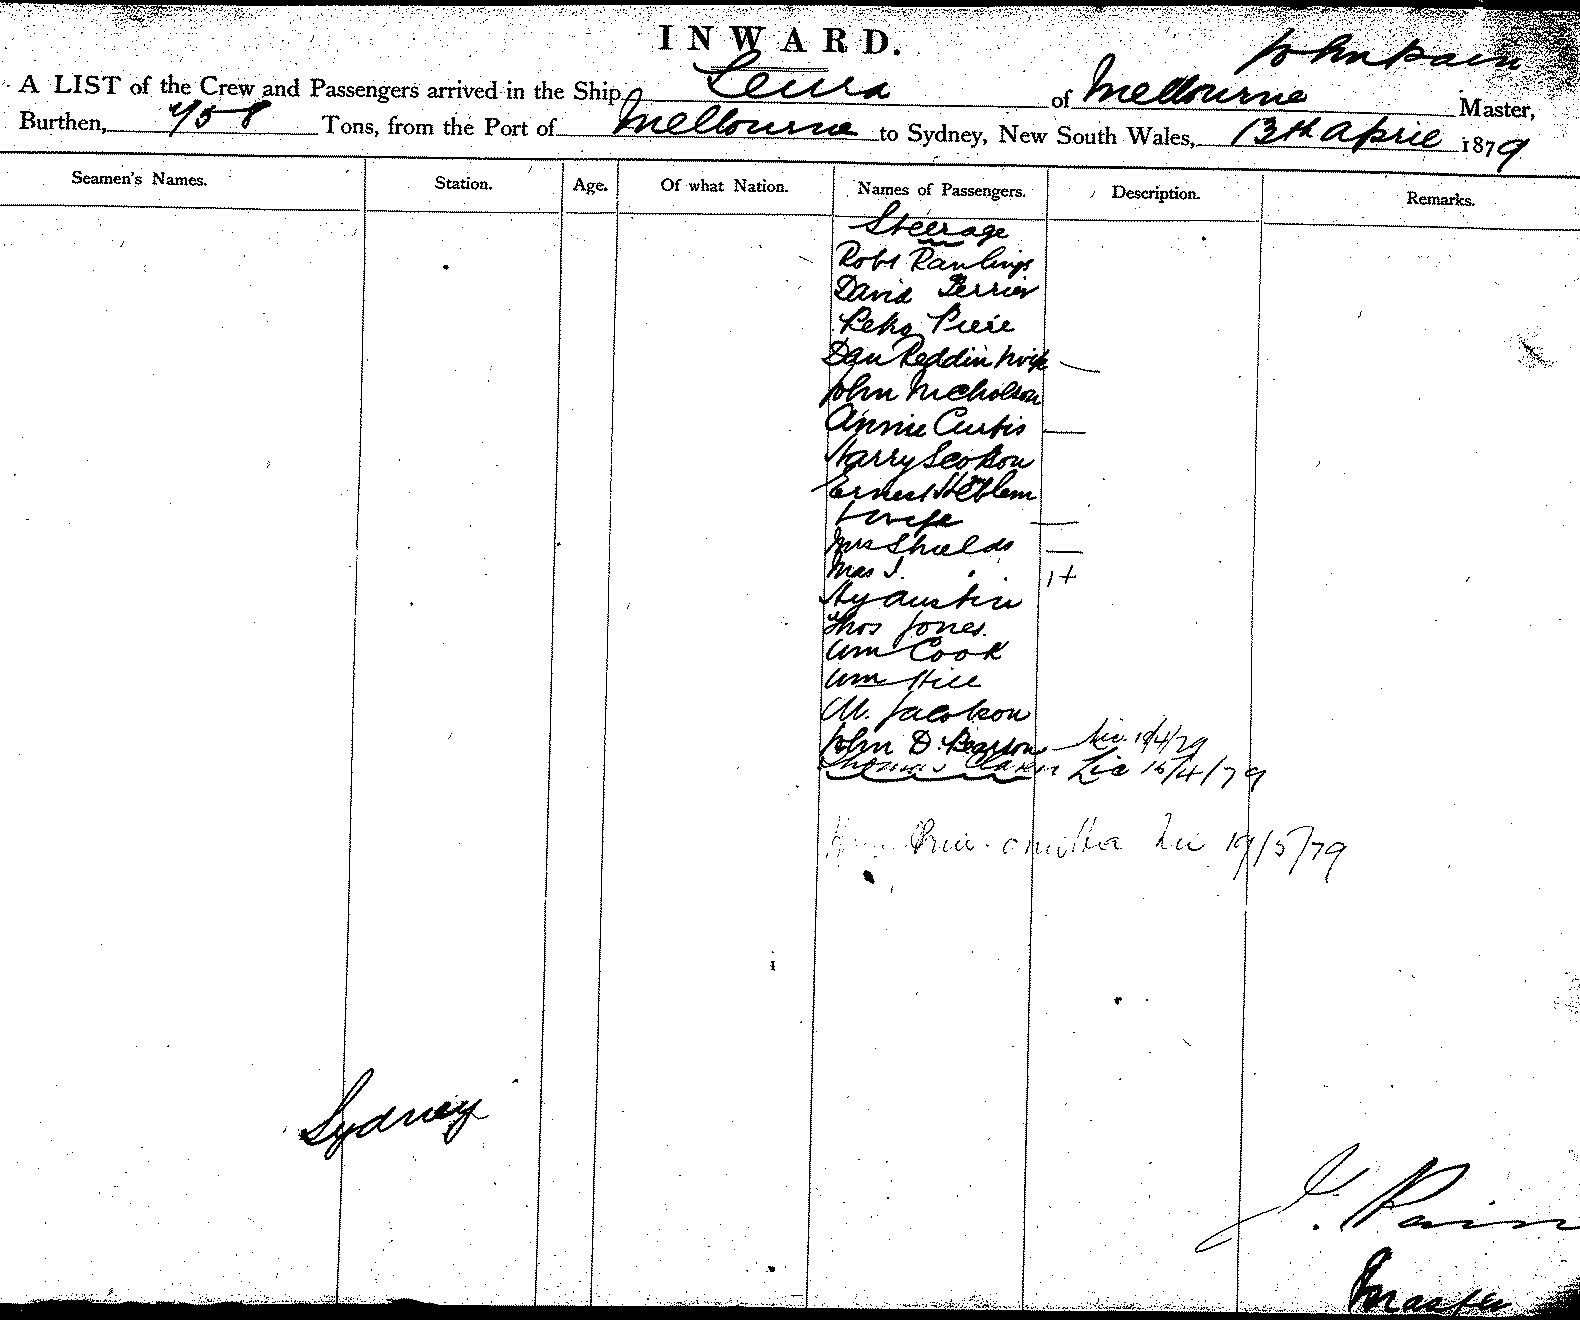 INWARD.
John Pain
A LIST of the Crew and Passengers arrived in the Ship Leura of Melbourne Master,
Burthen, 458 Tons, from the Port of Melbourne to Sydney, New South Wales, 13th April 1879
Seamen's Names. Station. Age. Of what Nation. Names of Passengers. Description. Remarks.
Steerage
Robt Rawlings
David Perrier
Dan Reddin & wife
John Nicholson
Annie Curtis
Harry
Ernest
& wife
Mrs Shields
Mas J. "
Hy Austin
Thos Jones.
Wm Cook
Wm Hill
M. Jacobson
John D. Pearson
Thomas 16/4/79
19/5/79
Sydney
J. Pain
Master